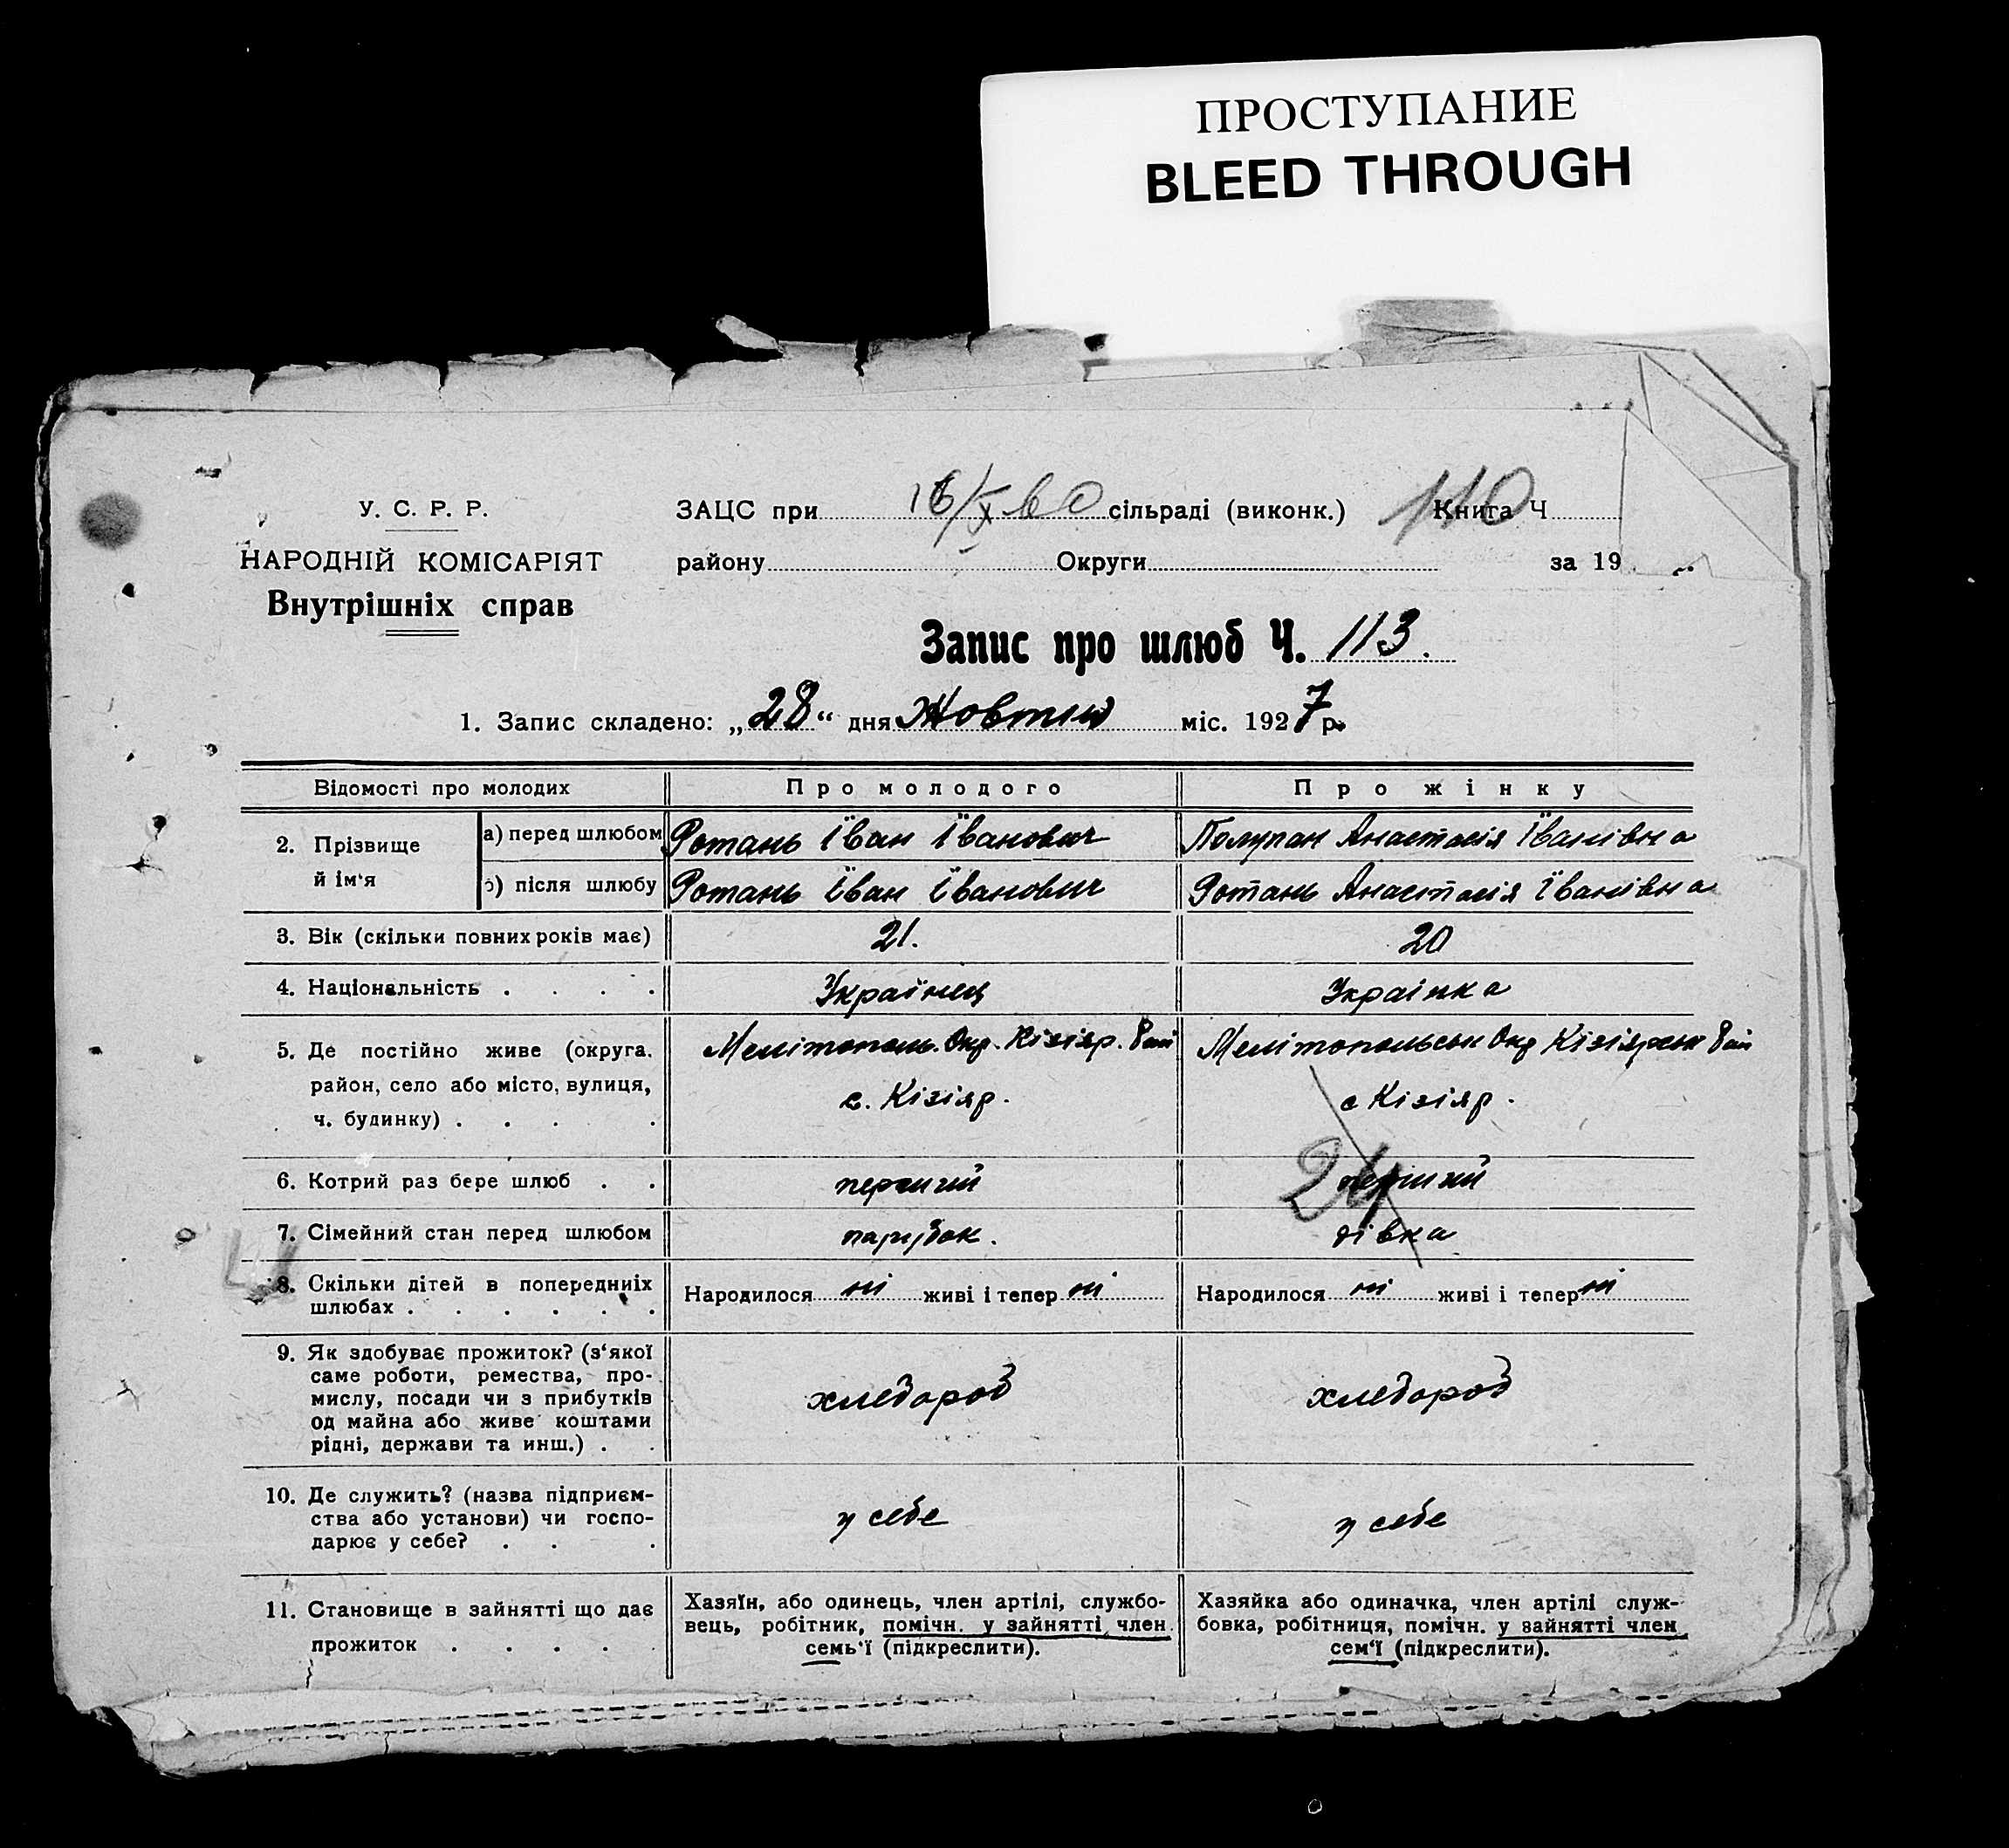 ПРОСТУПАНИЕ
BLEED THROUGH
У. С. Р. Р.
НАРОДНІЙ КОМІСАРІЯТ
Внутрішніх справ
ЗАЦС при сільраді (виконк.) Книга Ч
110
району Округи за 19
Запис про шлюб Ч. 113.
1. Запис складено: „28“ дня Жовтня міс. 1927 р.
Відомості про молодих Про молодого Про жінку
2. Прізвище й ім‘я
а) перед шлюбом Ротань Іван Іванович Полупан Анастасія Іванівна
б) після шлюбу Ротань Іван Іванович Ротань Анастасія Іванівна
3. Вік (скільки повних років має) 21. 20
4. Національність . . . . Українец Українка
5. Де постійно живе (округа, Мелітополь. Окр. Кізіяр. Рай Мелітопольськ Окр Кізіярськ Рай
район, село або місто, вулиця, с. Кізіяр. с Кізіяр.
ч. будинку) . . . .
24
6. Котрий раз бере шлюб . . перший перший
7. Сімейний стан перед шлюбом парубок. дівка
8. Скільки дітей в попередниіх Народилося ні живі і тепер ні Народилося ні живі і тепер ні
шлюбах . . . . . .
9. Як здобуває прожиток? (з‘якої
саме роботи, ремества, про-
мислу, посади чи з прибутків хлебороб хлебороб
од майна або живе коштами
рідні, держави та инш.) . .
10. Де служить? (назва підприєм-
ства або установи) чи госпо- у себе у себе
дарює у себе? . . .
11. Становище в зайнятті що дає
прожиток . . . . .
Хазяїн, або одинець, член артілі, службо-
вець, робітник, помічн. у зайнятті член
семь‘ї (підкреслити).
Хазяйка або одиначка, член артілі служ-
бовка, робітниця, помічн. у зайнятті член
сем‘ї (підкреслити).